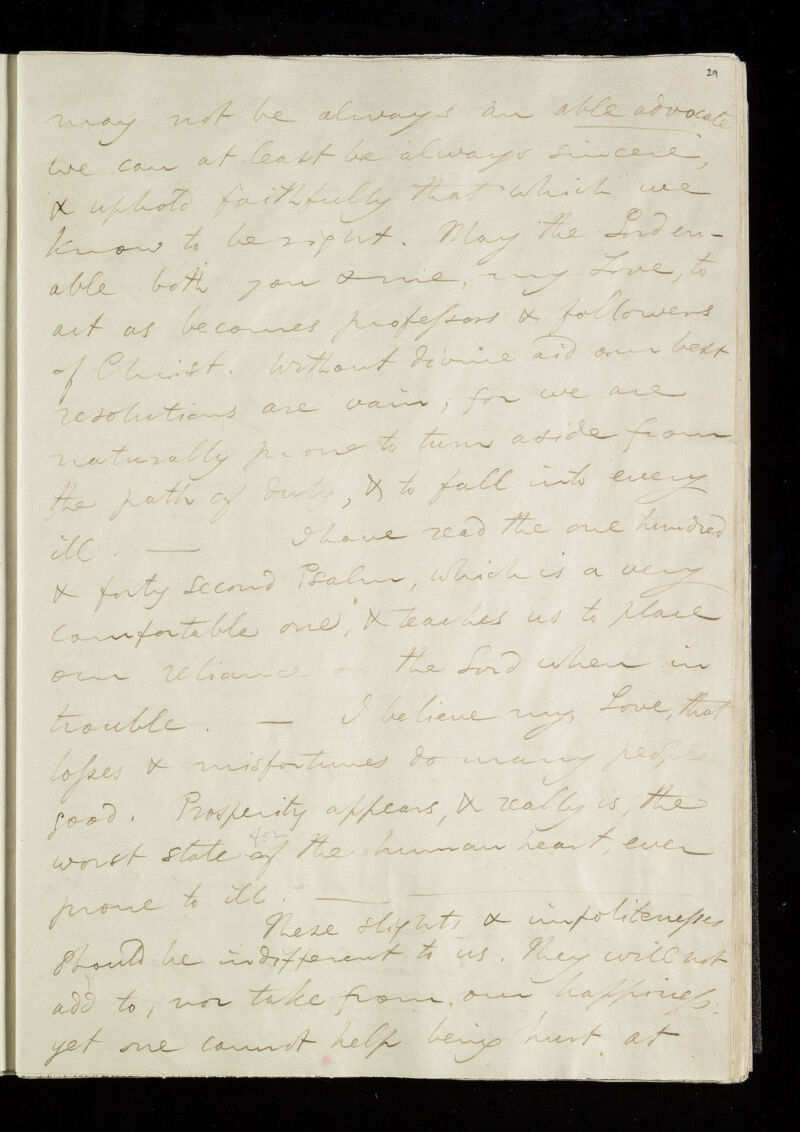 29
may not be always an able advocate
we can at least be always sincere,
& uphold faithfully that which we
know to be right. May the Lord en-
able both you & me, my Love, to
act as becomes professors & followers
of Christ. Without divine aid our best
resolutions are vain; for we are
naturally prone to turn aside from
the path of duty, & to fall into every
ill. — I have read the one hundred
& forty second Psalm, which is a very
comfortable one, & teaches us to place
our reliance on the Lord when in
trouble. — I believe my Love, that
losses & misfortunes do many people
good. Prosperity appears, & really is, the
for
worst state of the human heart, ever
prone to ill. —
These slights & impolitenesses
should be indifferent to us. They will not
add to, nor take from our happiness.
yet one cannot help being hurt at